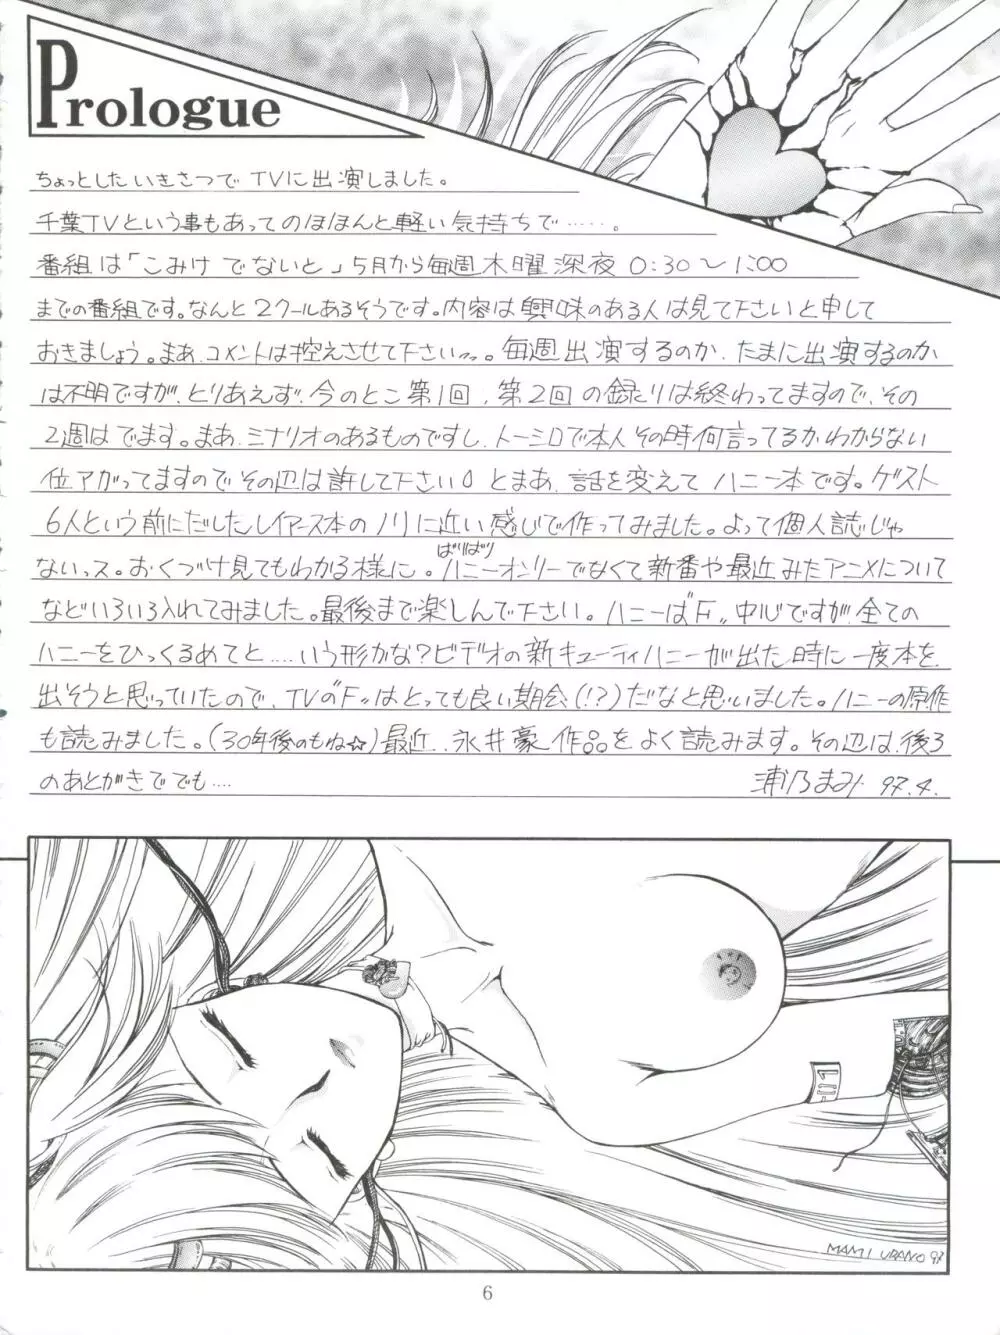 Prologue
ちょっとしたいきさつでTVに出演しました。
千葉TVという事もあってのほほんと軽い気持ちで……。
番組は「こみけでないと」5月から毎週木曜深夜0:30〜1:00
までの番組です。なんと2クールあるそうです。内容は興味のある人は見て下さいと申して
おきましょう。まあ、コメントは控えさせて下さい…。毎週出演するのか、たまに出演するのか
は不明ですが、とりあえず、今のとこ第1回、第2回の録りは終わってますので、その
2週はでます。まあ、ミナリオのあるものですし、トーシロで本人その時何言ってるかわからない
位アガってますのでその辺は許して下さい。とまあ、話を変えてハニー本です。ゲスト
6人という前にだしたレイアース本のノリに近い感じで作ってみました。よって個人誌じゃ
ないっス。おくづけ見てもわかる様に。ばりばりハニーオンリーでなくて新番や最近みたアニメについて
などいろいろ入れてみました。最後まで楽しんで下さい。ハニーは"F"中心ですが全ての
ハニーをひっくるめてと……いう形かな?ビデオの新キューティハニーが出た時に一度本を
出そうと思っていたので、TVの"F"はとっても良い期会(!?)だなと思いました。ハニーの原作
も読みました。(30年後のもね☆)最近、永井豪作品をよく読みます。その辺は、後3
のあとがきででも…. 浦乃まみ 97.4.
MAMI URANO 97
6